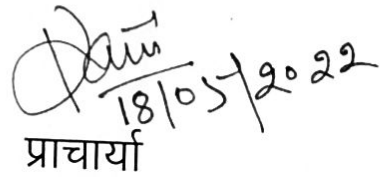 18/05/2022
प्राचार्या